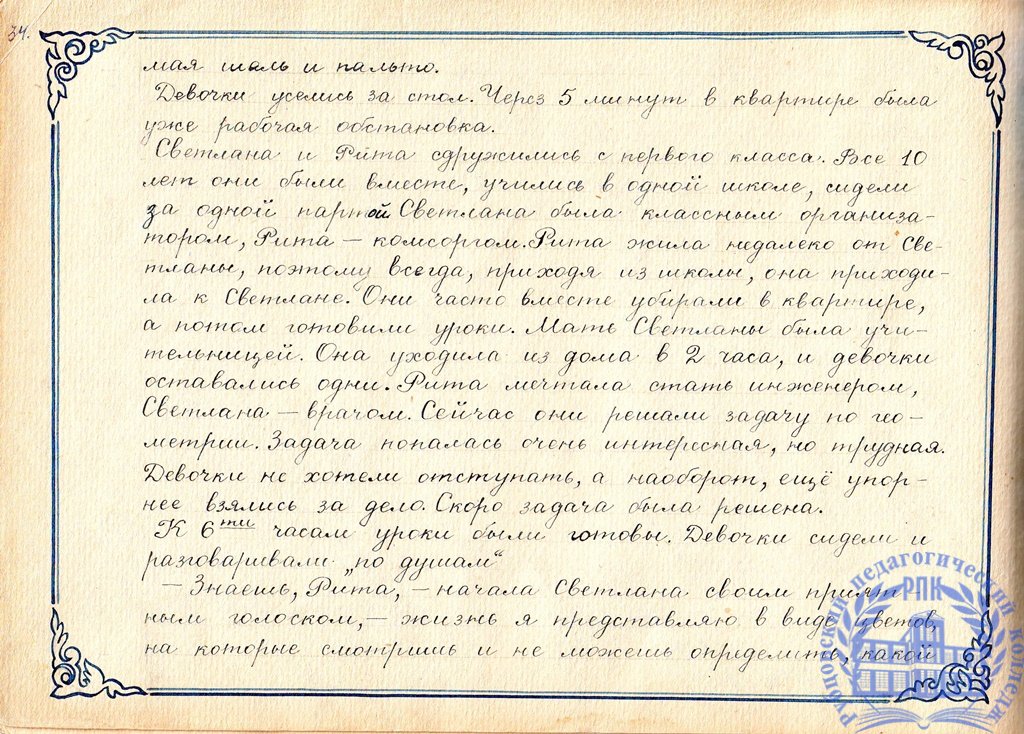 34.
мая шаль и пальто.
Девочки уселись за стол. Через 5 минут в квартире была
уже рабочая обстановка.
Светлана и Рита сдружились с первого класса. Все 10
лет они были вместе, учились в одной школе, сидели
за одной партой Светлана была классным организа-
тором, Рита — комсоргом. Рита жила недалеко от Све-
тланы, поэтому всегда, приходя из школы, она приходи-
ла к Светлане. Они часто вместе убирали в квартире,
а потом готовили уроки. Мать Светланы была учи-
тельницей. Она уходила из дома в 2 часа, и девочки
оставались одни. Рита мечтала стать инженером,
Светлана — врачом. Сейчас они решали задачу по гео-
метрии. Задача попалась очень интересная, но трудная.
Девочки не хотели отступать, а наоборот, ещё упор-
нее взялись за дело. Скоро задача была решена.
К 6ти часам уроки были готовы. Девочки сидели и
разговаривали „по душам“
— Знаешь, Рита, — начала Светлана своим прият-
ным голоском, — жизнь я представляю в виде цветов,
на которые смотришь и не можешь определить, какой
педагогический колледж
РПК